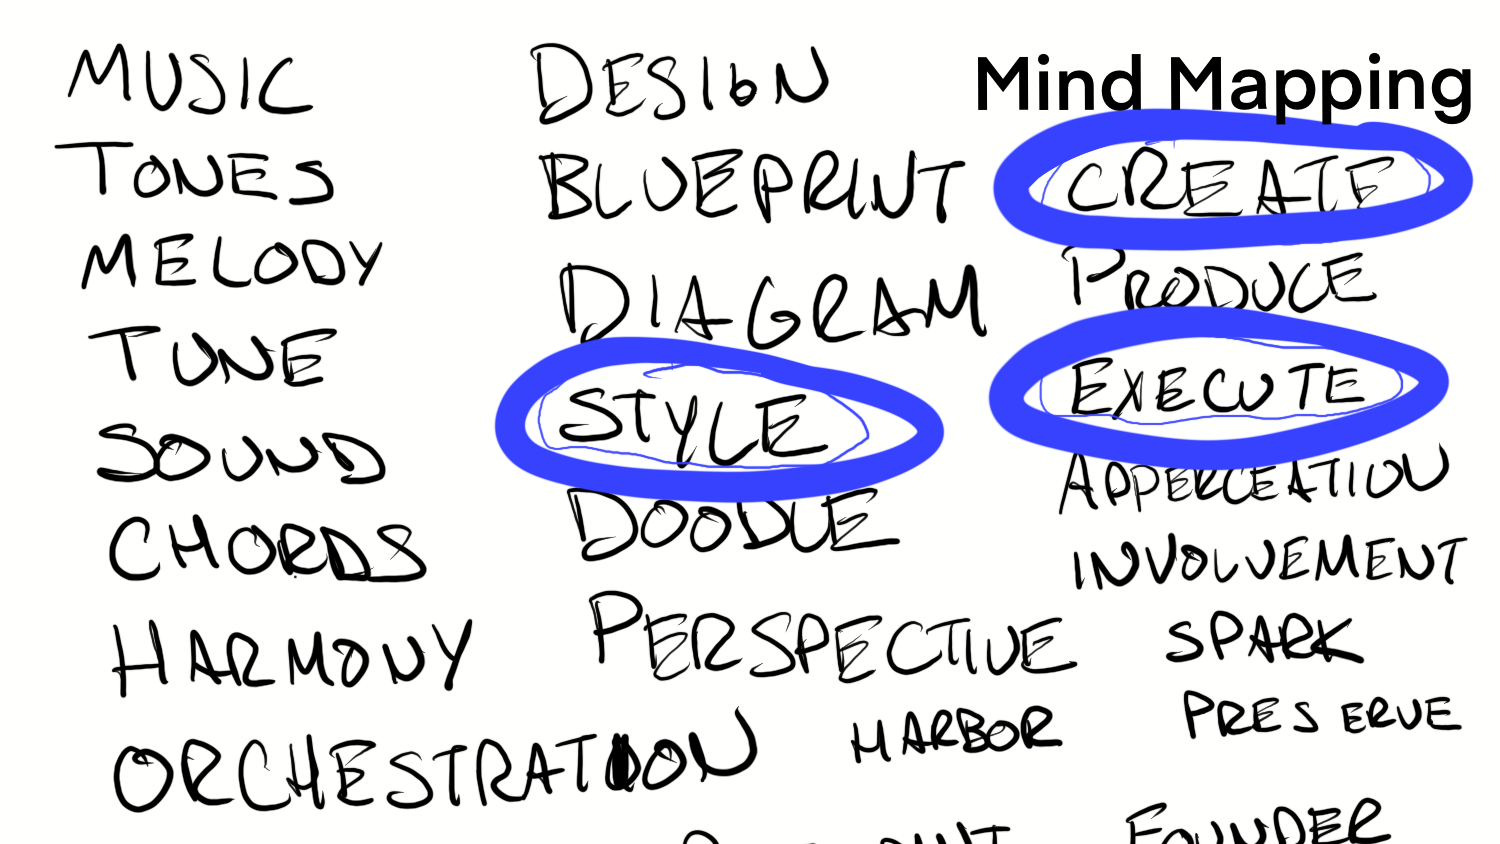 MUSIC
TONES
MELODY
TUNE
SOUND
CHORDS
HARMONY
ORCHESTRATION
DESIGN
BLUEPRINT
DIAGRAM
STYLE
DOODLE
PERSPECTIVE
HARBOR
Mind Mapping
CREATE
PRODUCE
EXECUTE
APPERCEATION
INVOLVEMENT
SPARK
PRESERVE
FOUNDER